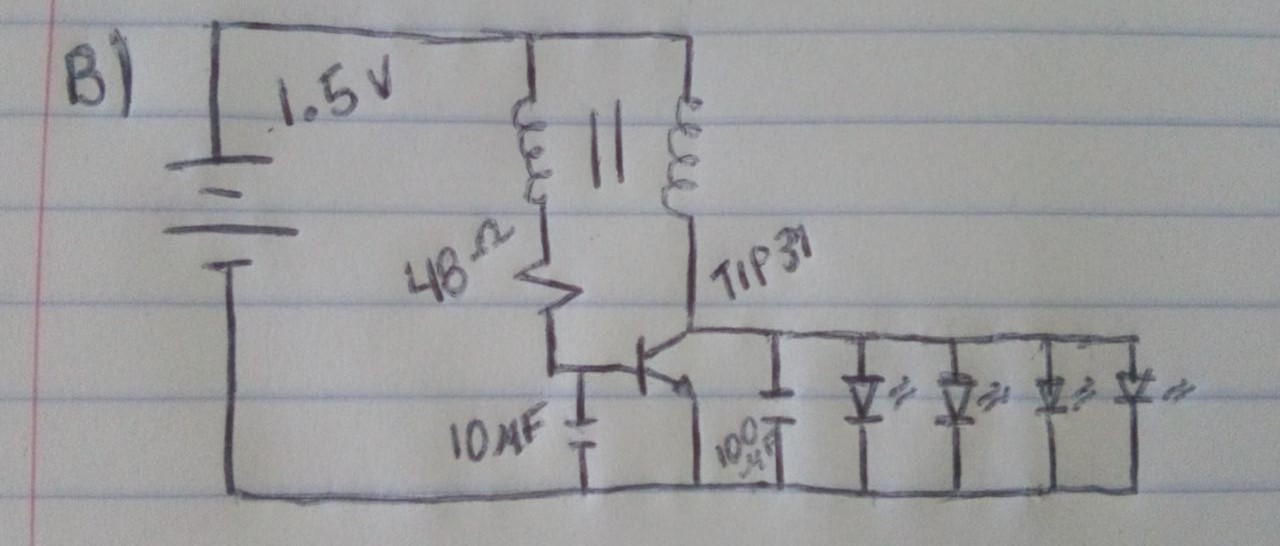 B)
1.5V
48Ω
TIP31
10μF
100
μF